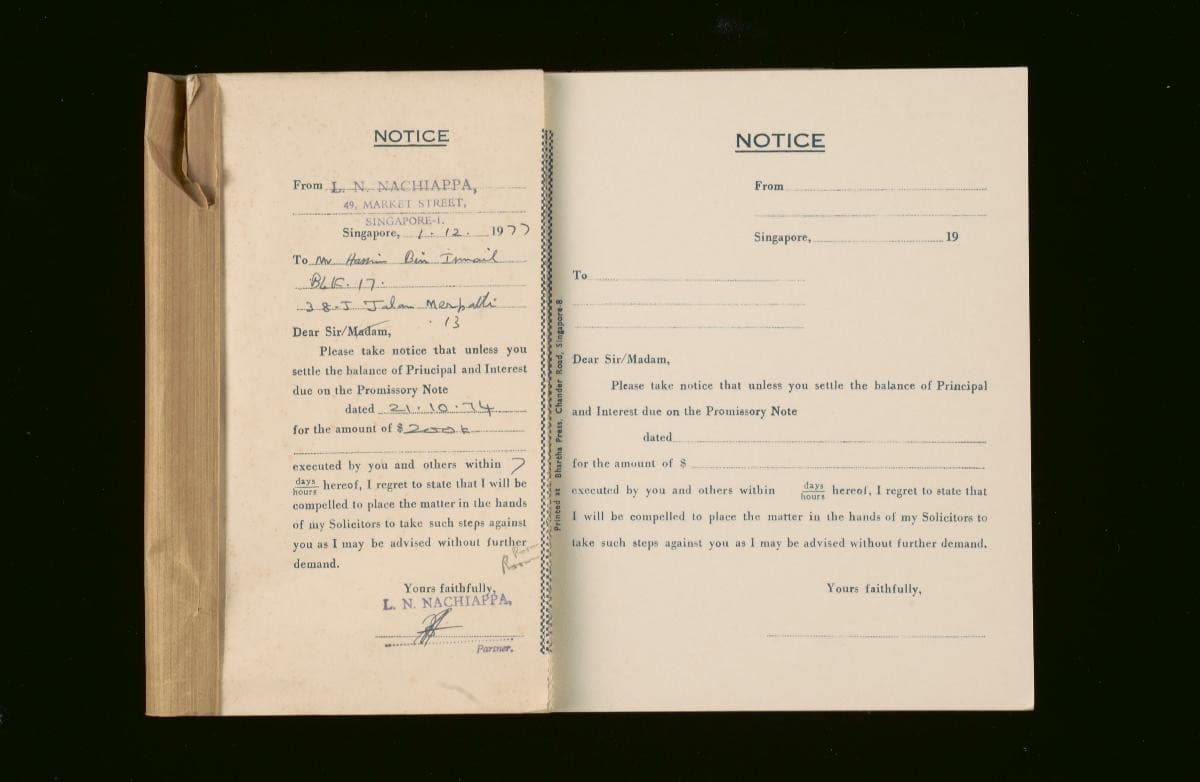 NOTICE
From L. N. NACHIAPPA,
49, MARKET STREET,
SINGAPORE-1.
Singapore, 1. 12. 1977
To Mr Hassim Bin Ismail
BLK. 17.
38-J Jalan Merpatti
13
Dear Sir/Madam,
Please take notice that unless you
settle the balance of Principal and Interest
due on the Promissory Note
dated 21.10.74
for the amount of $ 200
executed by you and others within 7
days
hours hereof, I regret to state that I will be
compelled to place the matter in the hands
of my Solicitors to take such steps against
you as I may be advised without further
demand.
Yours faithfully,
L. N. NACHIAPPA,
Partner.
Printed at Bharatha Press, Chander Road, Singapore-8
NOTICE
From
Singapore, 19
To
Dear Sir/Madam,
Please take notice that unless you settle the balance of Principal
and Interest due on the Promissory Note
dated
for the amount of $
executed by you and others within days
hours hereof, I regret to state that
I will be compelled to place the matter in the hands of my Solicitors to
take such steps against you as I may be advised without further demand.
Yours faithfully,